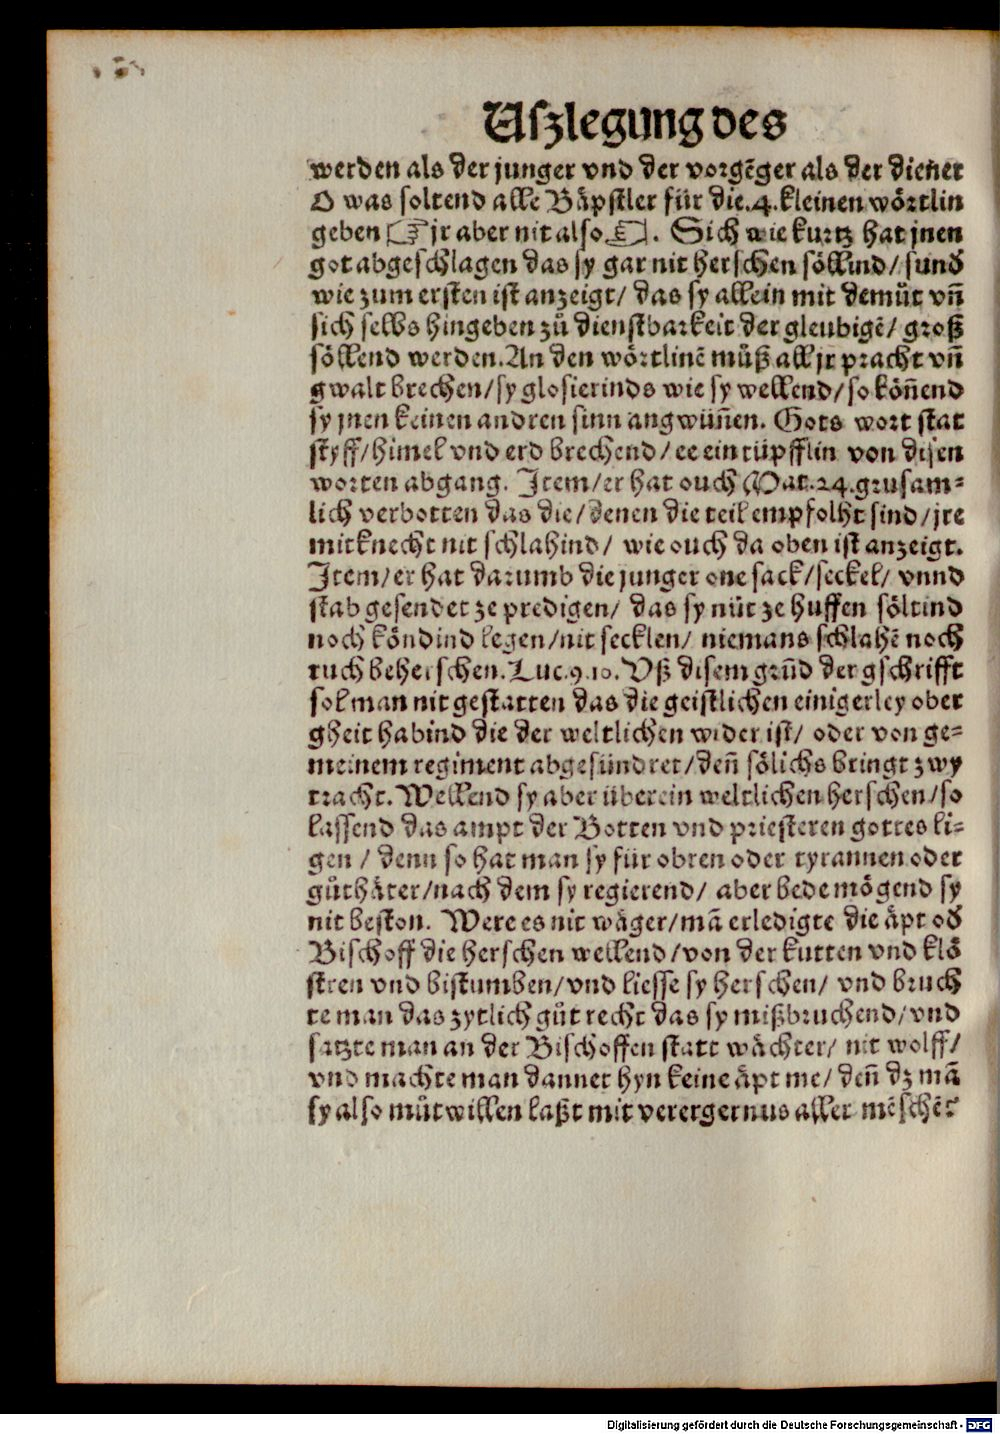 Uſzlegung des
werden als der junger vnd der vorgẽger als der diener
O was ſoltend alle Bäpſtler für die .4. kleinen wörtlin
geben ☞ jr aber nit alſo ☜. Sich wie kurtz hat jnen
got abgeſchlagen das sy gar nit herſchen ſöllind/ ſund
wie zum erſten iſt anzeigt/ das ſy allein mit demůt vñ
ſich ſelbs hingeben zů dienſtbarkeit der gleubigẽ/ groß
ſöllend werden. An den wörtlinẽ můß all jr pracht vñ
gwalt brechen/ ſy gloſierinds wie ſy wellend/ ſo köñend
ſy jnen keinen andren ſinn angwüñen. Gots wort ſtat
ſtyff/ himel vnd erd brechend/ ee ein tüpfflin von diſen
worten abgang. Item/ er hat ouch Mat. 24. gruſam-
lich verbotten das die/ denen die teil empfolht ſind/ jre
mitknecht nit ſchlahind/ wie ouch da oben iſt anzeigt.
Item/ er hat darumb die junger one ſack/ ſeckel/ vnnd
ſtab geſendet ze predigen/ das ſy nüt ze huffen ſöltind
noch köndind legen/ nit ſecklen/ niemans ſchlahẽ noch
ruch beherſchen. Luc. 9. 10. Vß diſem grũd der gſchrifft
ſol man nit geſtatten das die geiſtlichen einigerley ober
gheit habind die der weltlichen wider iſt/ oder von ge-
meinem regiment abgeſündret/ deñ ſölichs bringt zwy
tracht. Wellend ſy aber überein weltlichen herſchen/ ſo
laſſend das ampt der Botten vnd prieſteren gottes li-
gen/ denn ſo hat man ſy für obren oder tyrannen oder
gůthäter/ nach dem ſy regierend/ aber bede mögend ſy
nit beſton. Were es nit wäger/ mã erledigte die äpt od
Biſchoff die herſchen wellend/ von der kutten vnd klö
ſtren vnd biſtumben/ vnd lieſſe ſy herſchen/ vnd bruch
te man das zytlich gůt recht das ſy mißbruchend/ vnd
ſatzte man an der Biſchoffen ſtatt wächter/ nit wolff/
vnd machte man dannet hyn keine äpt me/ deñ dz mã
ſy alſo můtwillen laßt mit verergernus aller mẽſchẽ
Digitalisierung gefördert durch die Deutsche Forschungsgemeinschaft - DFG